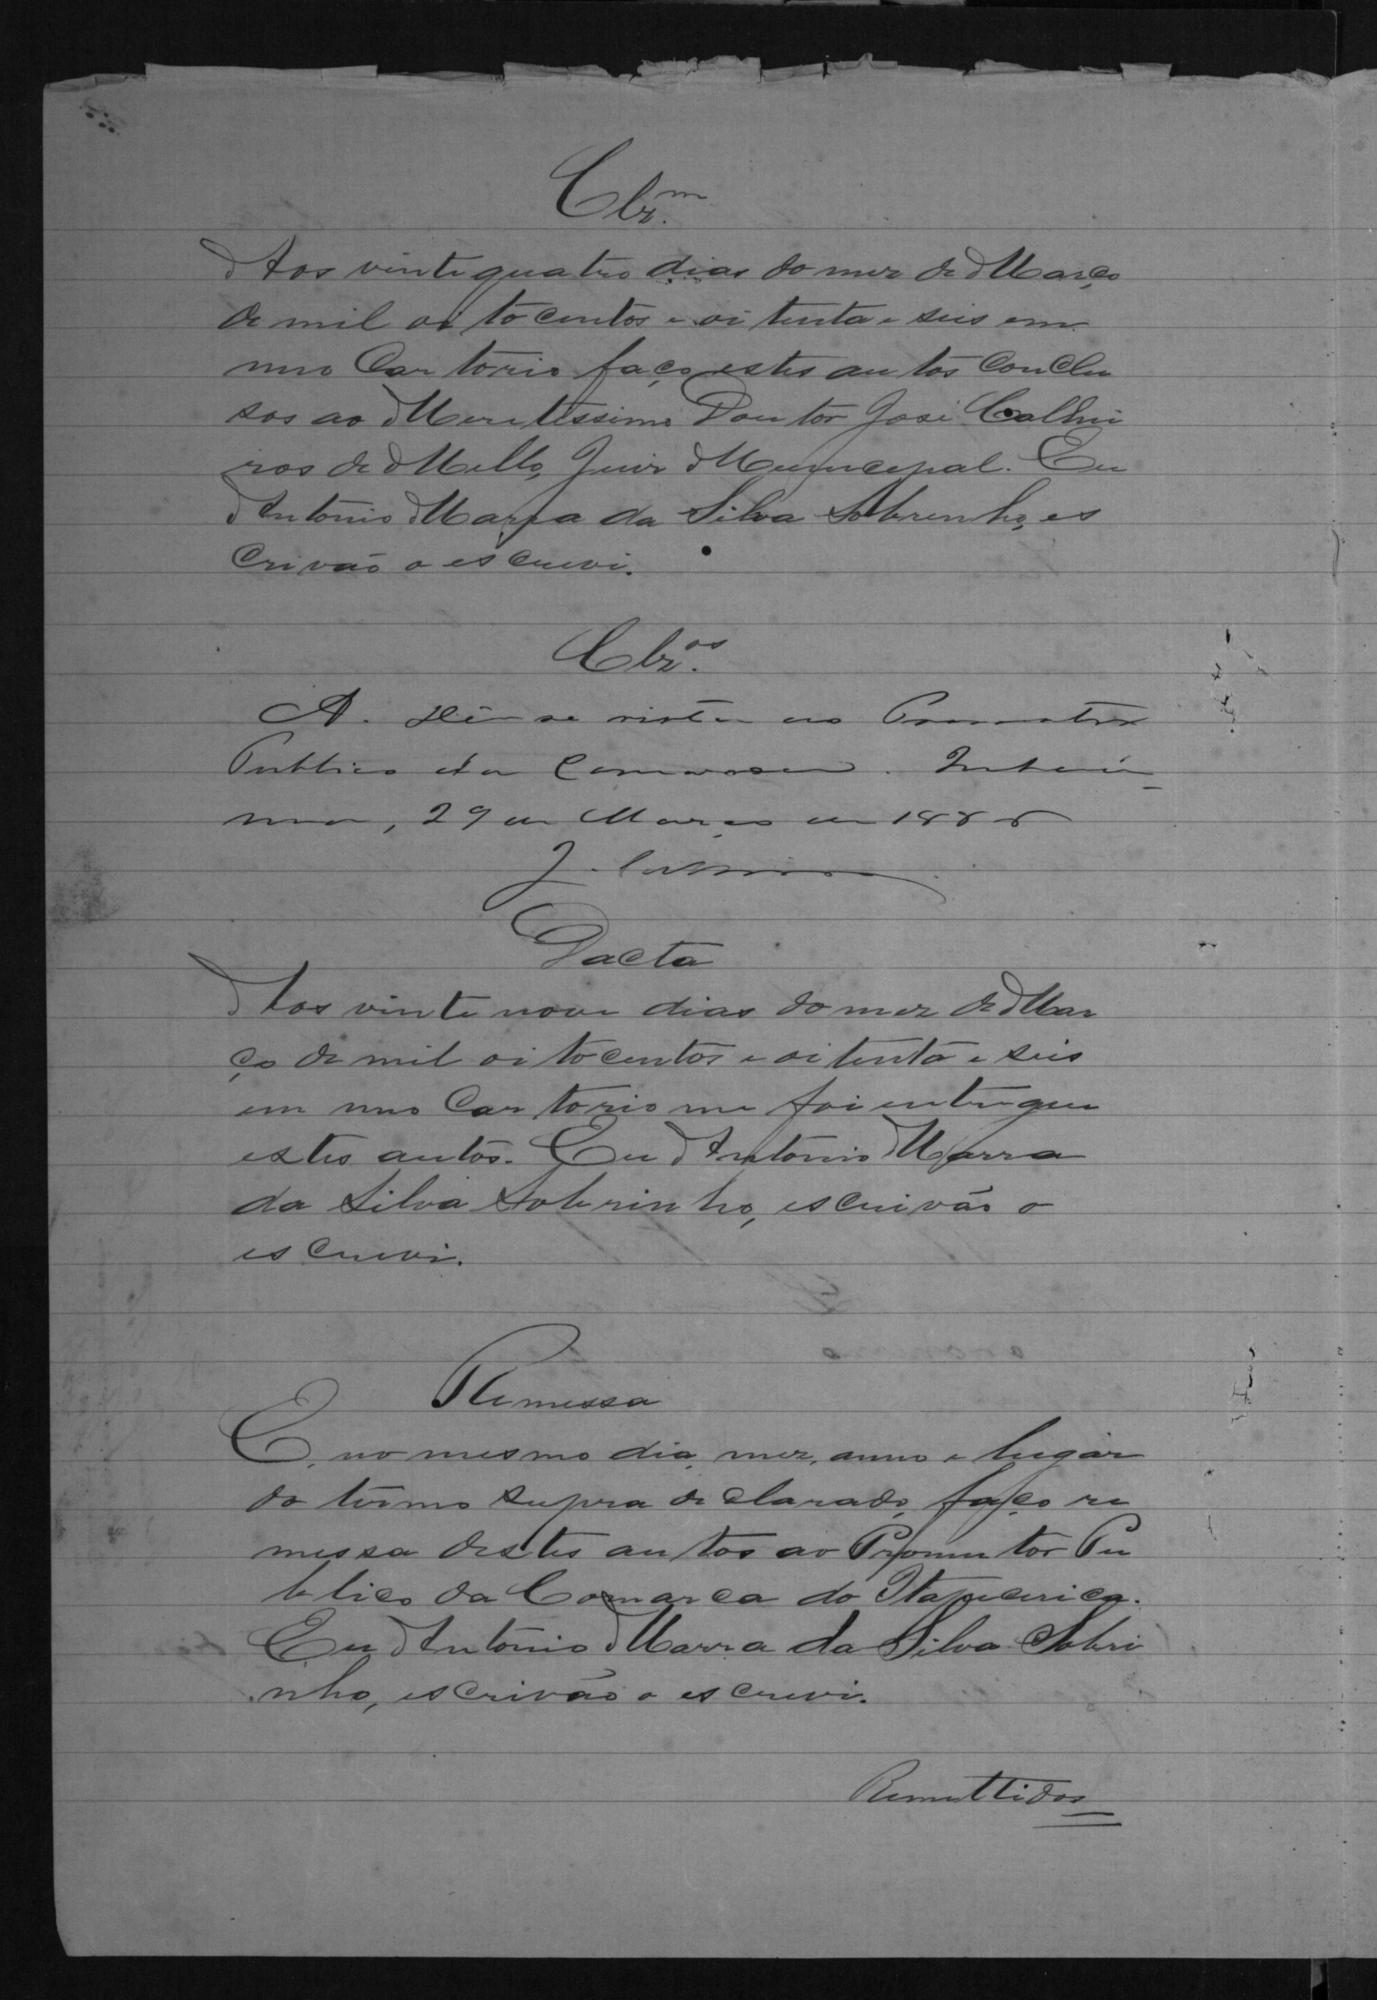 Clz.m
Aos vinte quatro dias do mez de Março
de mil oitocentos e oitenta e seis em
meo Cartorio faço estes autos conclu
sos ao Meretissimo Doutor José Calhei
ros de Mello, Juiz Municepal. Eu
Antonio Marra da Silva Sobrinho, es
crivão o escrevi.
Clz.os
A. Dê-se vista ao Promotor
Publico da Comarca.
29 de Março de 1886
Dacta
Aos vinte nove dias do mez de Mar
ço de mil oitocentos e oitenta e seis
em meo Cartorio me foi entregue
estes autos. Eu Antonio Marra
da Silva Sobrinho, escrivão o
escrevi.
Remessa
E, no mesmo dia, mez, anno e lugar
do termo supra declarado, faço re
messa destes autos ao Promutor Pu
blico da Comarca do Itapecerica.
Eu Antonio Marra da Silva Sobri
nho, escrivão o escrevi.
Remettidos